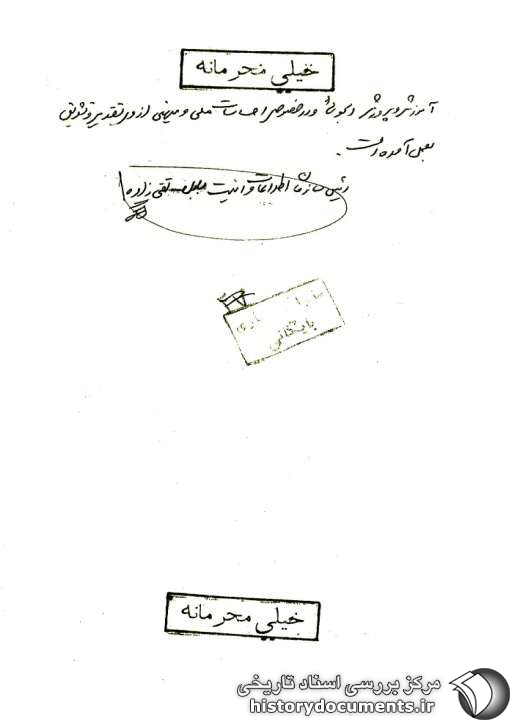 خیلی محرمانه
آموزش و پرورش و در خصوص احساسات ملی و میهنی از وی تقدیر و تشویق
بعمل آمده است.
رئیس سازمان اطلاعات و امنیت بابل تقی زاده
بایگانی
خیلی محرمانه
مرکز بررسی اسناد تاریخی
historydocuments.ir